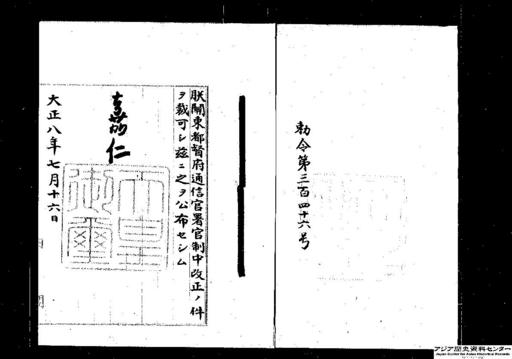 勅令第三百四十六号
朕關東都督府通信官署官制中改正ノ件
ヲ裁可シ茲ニ之ヲ公布セシム
嘉仁
天皇御璽
大正八年七月十六日
アジア歴史資料センター
Japan Center for Asian Historical Records